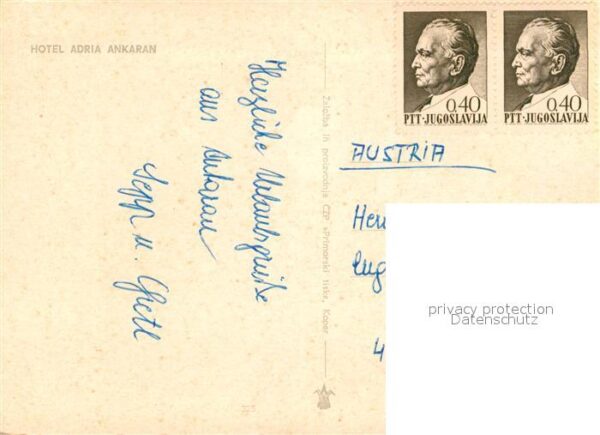 HOTEL ADRIA ANKARAN
Herzliche Urlaubsgrüße
aus Ankaran
Sepp u. Gretl
Založba in proizvodnja ČZP »Primorski tisk«, Koper
0.40
PTT-JUGOSLAVIJA
0.40
PTT-JUGOSLAVIJA
AUSTRIA
Her
Eug
4
privacy protection
Datenschutz